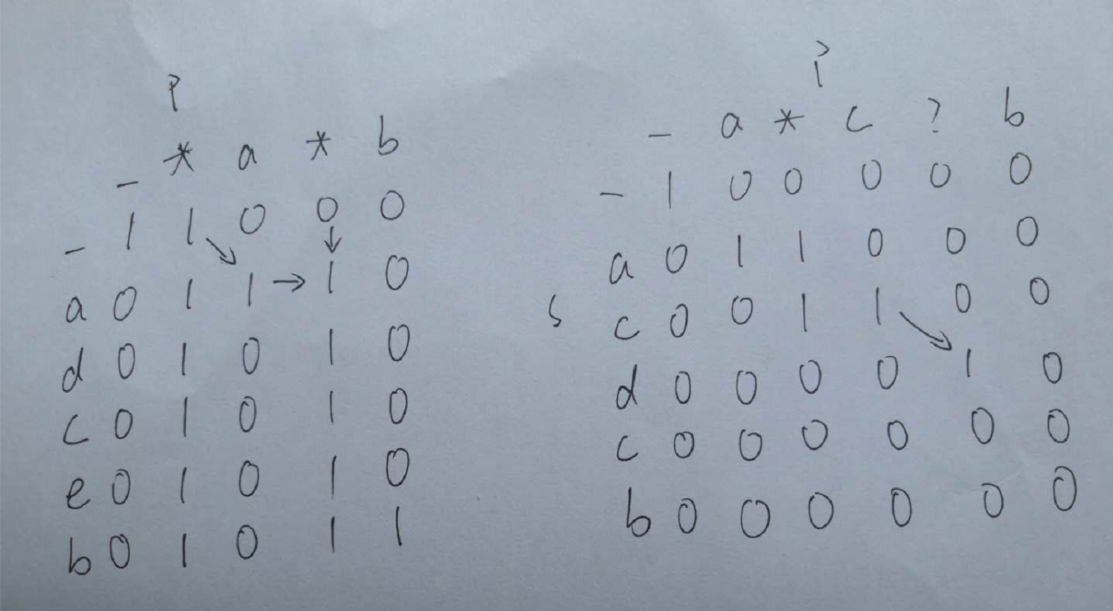 P
* a * b
–
– 1 1 0 0 0
a 0 1 1 → 1 0
d 0 1 0 1 0
c 0 1 0 1 0
e 0 1 0 1 0
b 0 1 0 1 1
P
– a * c ? b
– 1 0 0 0 0 0
a 0 1 1 0 0 0
S
c 0 0 1 1 0 0
d 0 0 0 0 1 0
c 0 0 0 0 0 0
b 0 0 0 0 0 0